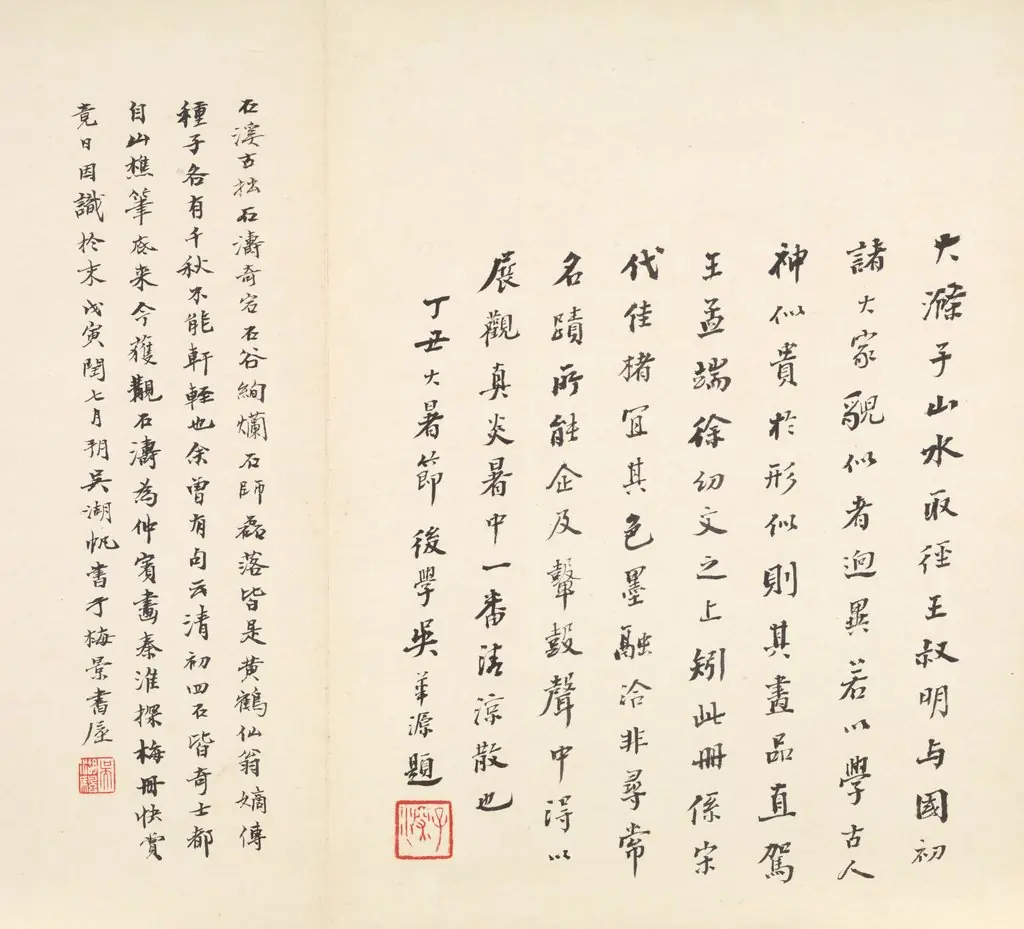 大滌子山水取徑王叔明与國初
諸大家貌似者迥異若以學古人
神似貴於形似則其畫品直駕
王孟端徐幼文之上矧此冊係宋
代佳楮宜其色墨融洽非尋常
名蹟所能企及鼙鼓聲中得以
展觀真炎暑中一番清涼散也
丁丑大暑節後學吳華源題
石溪古拙石濤奇宕石谷絢爛石師磊落皆是黄鶴仙翁嫡傳
種子各有千秋不能軒輊也余曾有句云清初四石皆奇士都
自山樵筆底来今獲觀石濤為仲賓畫秦淮探梅冊快賞
竟日因識於末戊寅閏七月朔吳湖帆書于梅景書屋